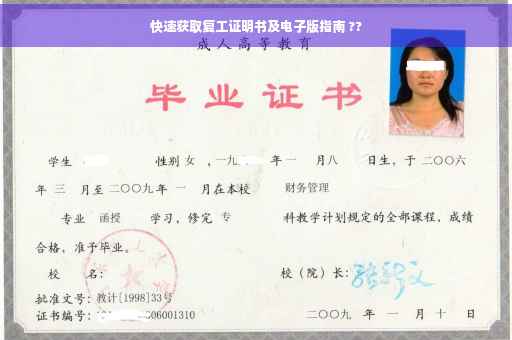 快速获取复工证明书及电子版指南 ??
成人高等教育
毕业证书
学生 性别 女 ，一九 年 一 月 八 日生，于 二〇〇六
年 三 月至 二〇〇九年 一 月在本校 财务管理
专业 函授 学习，修完 专 科教学计划规定的全部课程，成绩
合格，准予毕业。
校 名： 校（院）长：
批准文号：教计[1998]33号
证书编号： 06001310 二〇〇九 年 一 月 十 日